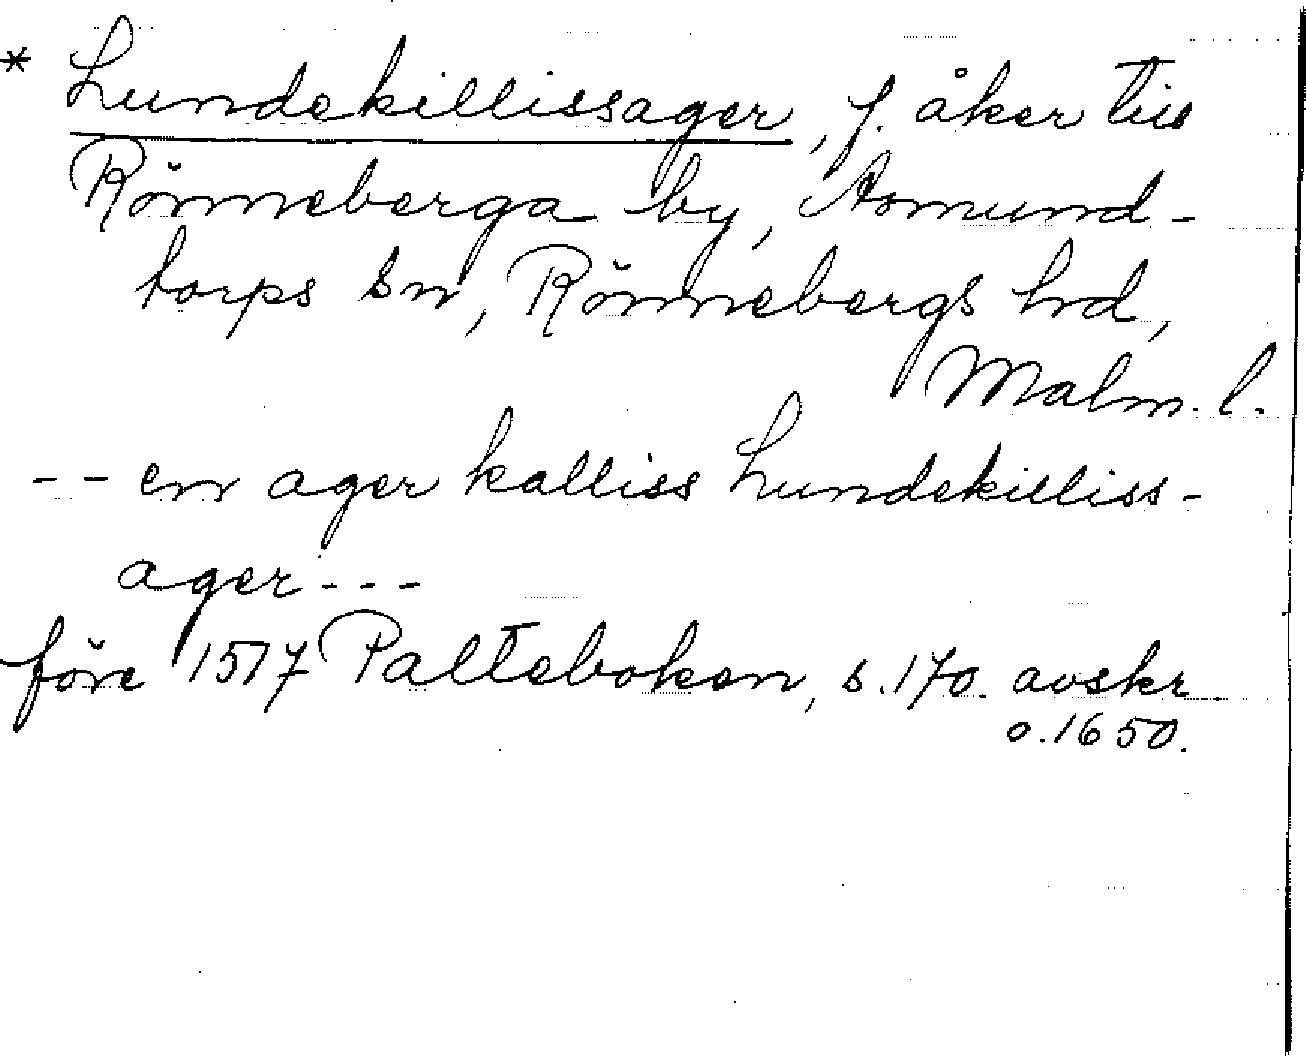 * Lundekillissager, f. åker till
Rönneberga by, Asmund-
torps sn, Rönnebergs hrd,
Malm. l.
-- en ager kalliss Lundekilliss-
ager ---
före 1517 Palteboken, s. 170. avskr
o. 1650.